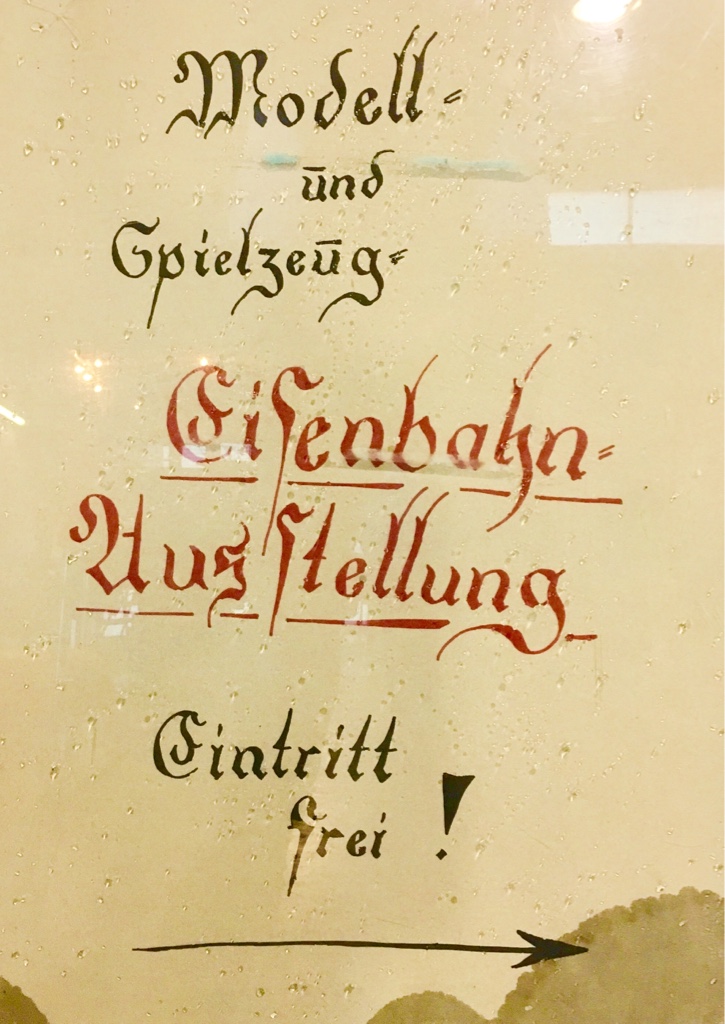 Modell-
und
Spielzeug-
Eisenbahn-
Ausstellung
Eintritt
frei!